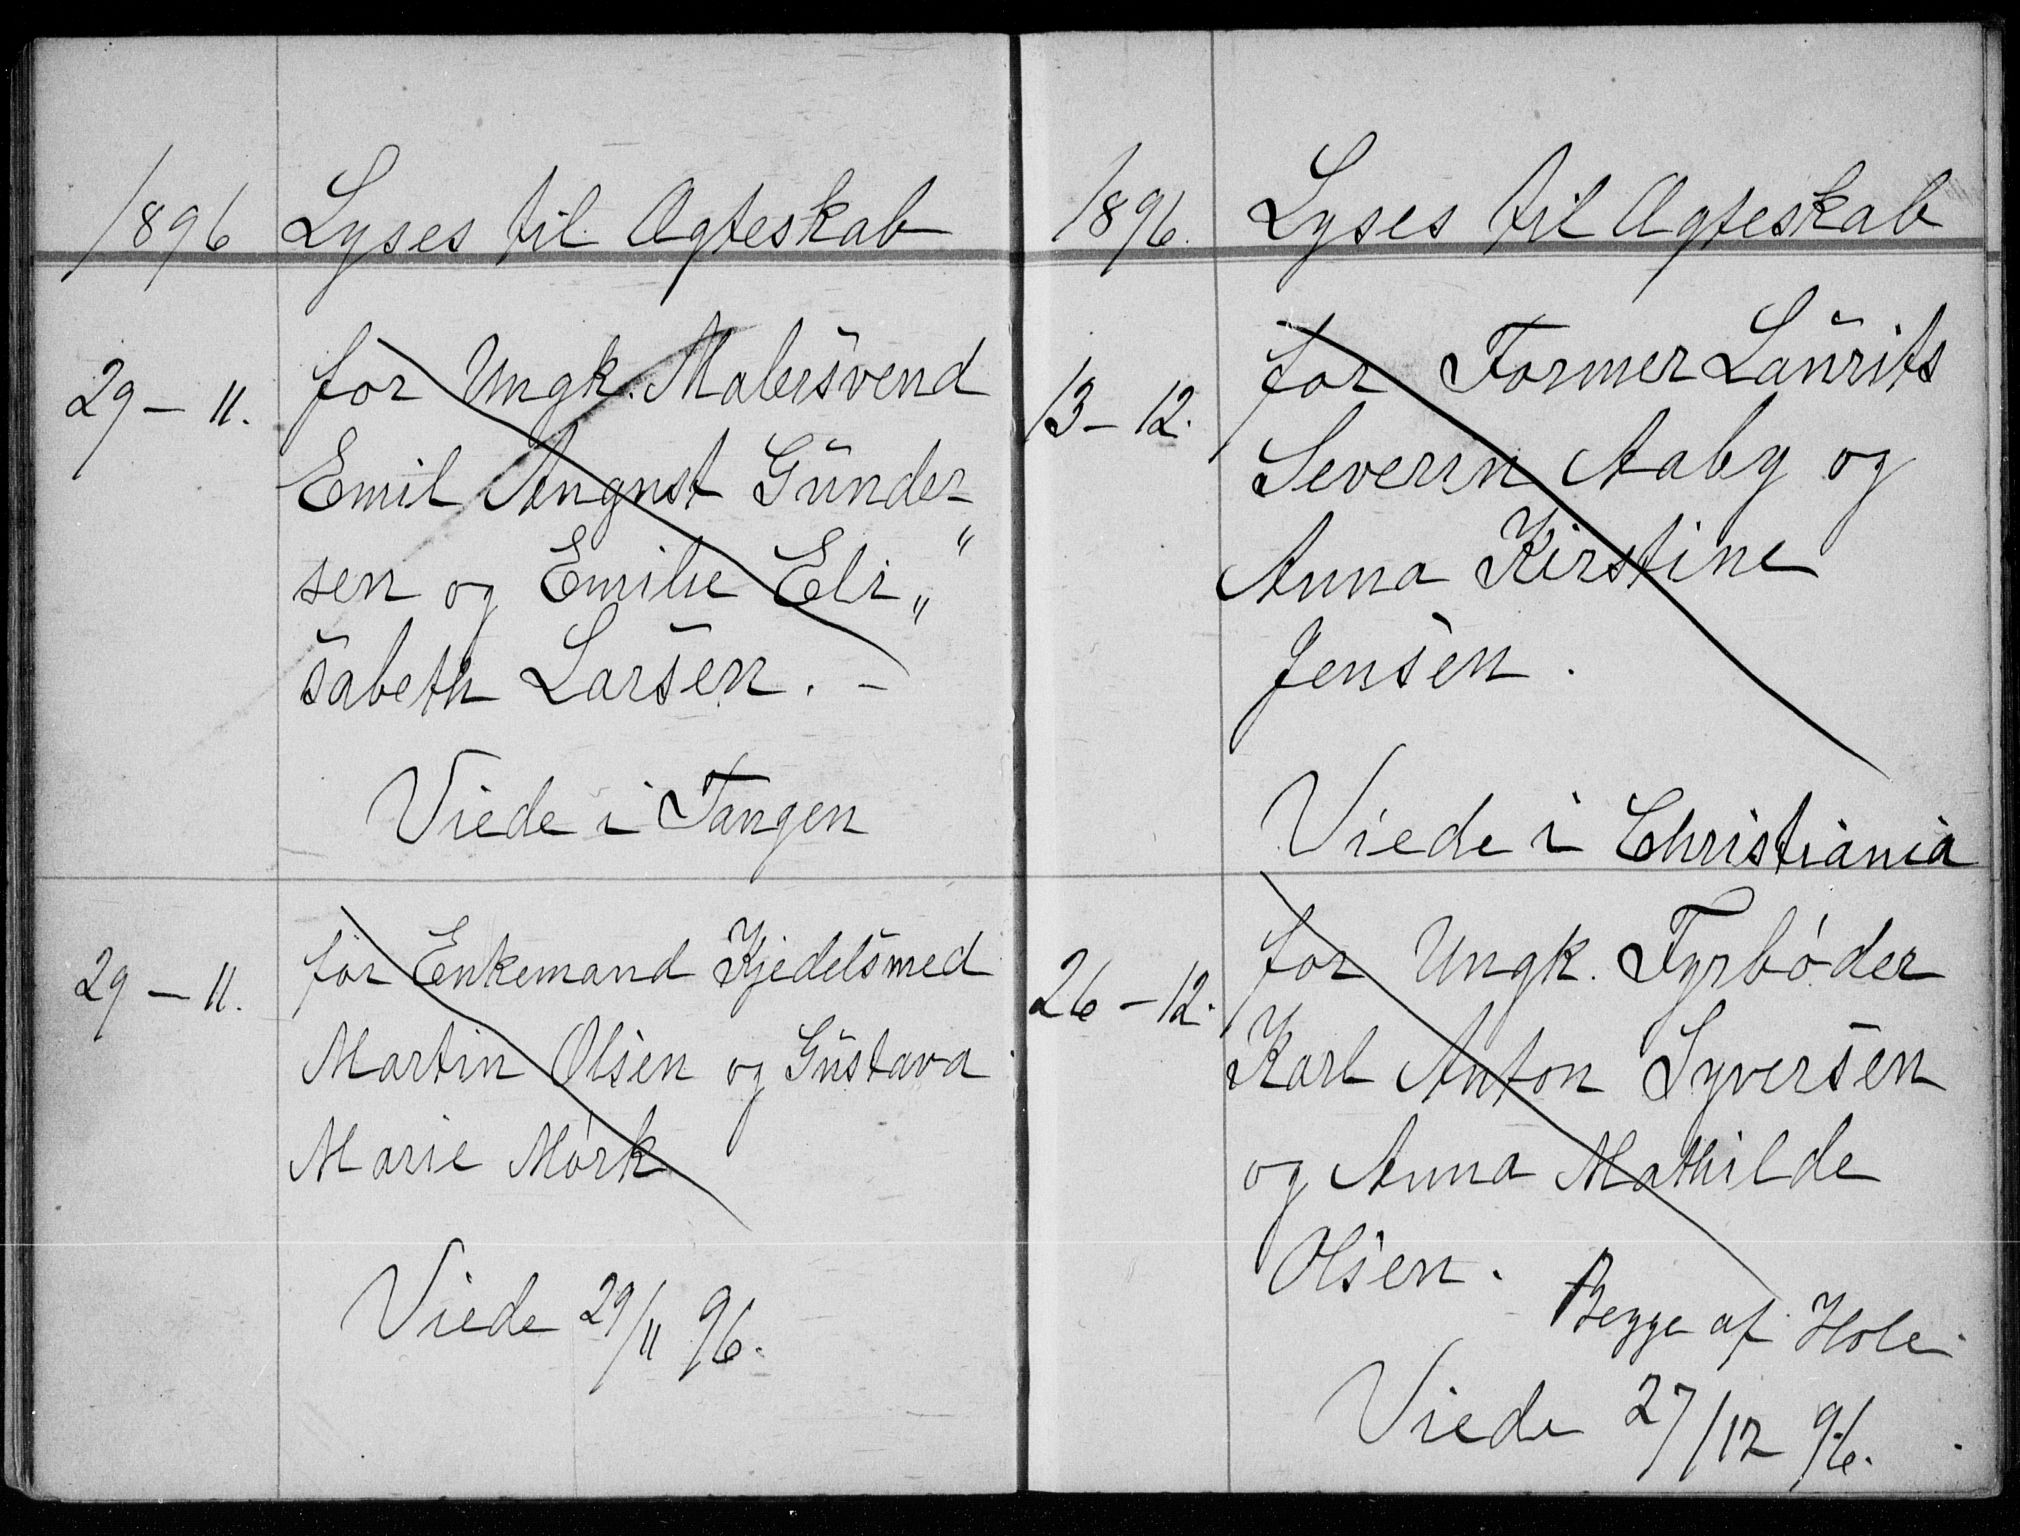 1896 Lyses til Ægteskab
29 – 11. for Ungk. Malersvend
Emil August Gunder-
sen og Emilie Eli„
"sabeth Larsen. –
Viede i Tangen
29 – 11. for Enkemand Kjedelsmed
Martin Olsen og Gustava
Marie Mørk
Viede 29/11 96.
1896. Lyses til Ægteskab
13 – 12. for Former Laurits
Severin Aaby og
Anna Kirstine
Jensen.
Viede i Christiania
26 – 12. for Ungk. Fyrbøder
Karl Anton Syversen
og Anna Mathilde
Olsen.
Begge af Hole
Viede 27/12 96.